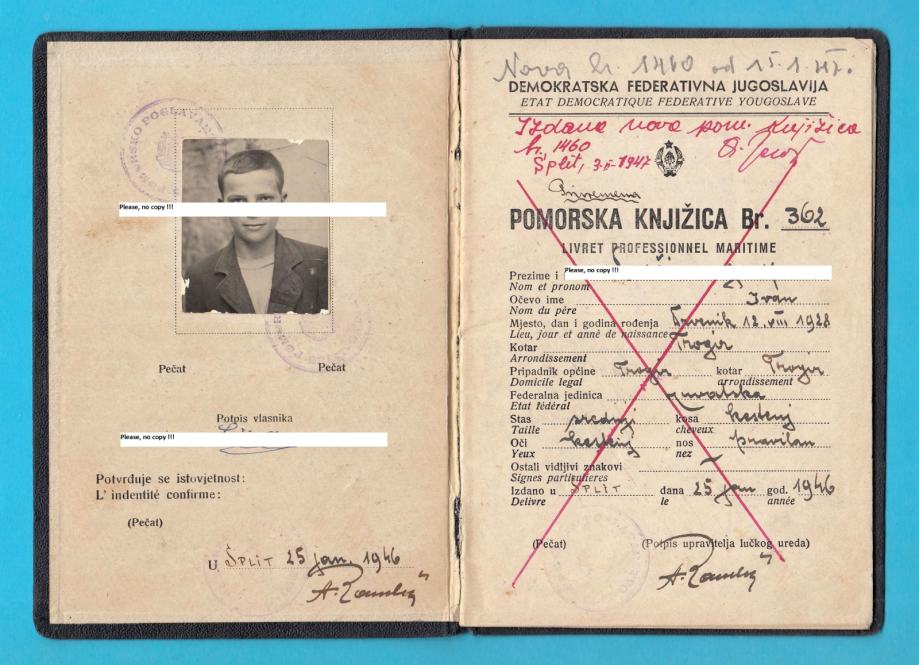 POMORSKO POGLAVAR
Please, no copy !!!
Pečat
Pečat
Potpis vlasnika
Please, no copy !!!
Potvrđuje se istovjetnost:
L' indentité confirme:
(Pečat)
U SPLIT 25 jan. 1946
Nova br. 1460 od 15.1.47.
DEMOKRATSKA FEDERATIVNA JUGOSLAVIJA
ETAT DEMOCRATIQUE FEDERATIVE YOUGOSLAVE
Izdana nova pom. knjižica
br. 1460
Split, 3-II-1947
Privremena
POMORSKA KNJIŽICA Br. 362
LIVRET PROFESSIONNEL MARITIME
Prezime i Please, no copy !!!
Nom et pronom
Očevo ime Ivan
Nom du père
Mjesto, dan i godina rođenja Drvenik 12. VIII 1928
Lieu, jour et annè de naissance
Kotar Trogir
Arrondissement
Pripadnik općine Trogir kotar Trogir
Domicile legal arrondissement
Federalna jedinica Hrvatska
Etat fédéral
Stas srednji kosa kestenj
Taille cheveux
Oči kestenj nos pravilan
Yeux nez
Ostali vidljivi znakovi
Signes partisulieres
Izdano u SPLIT dana 25 jan god. 1946
Delivre le année
(Pečat) (Potpis upravitelja lučkog ureda)